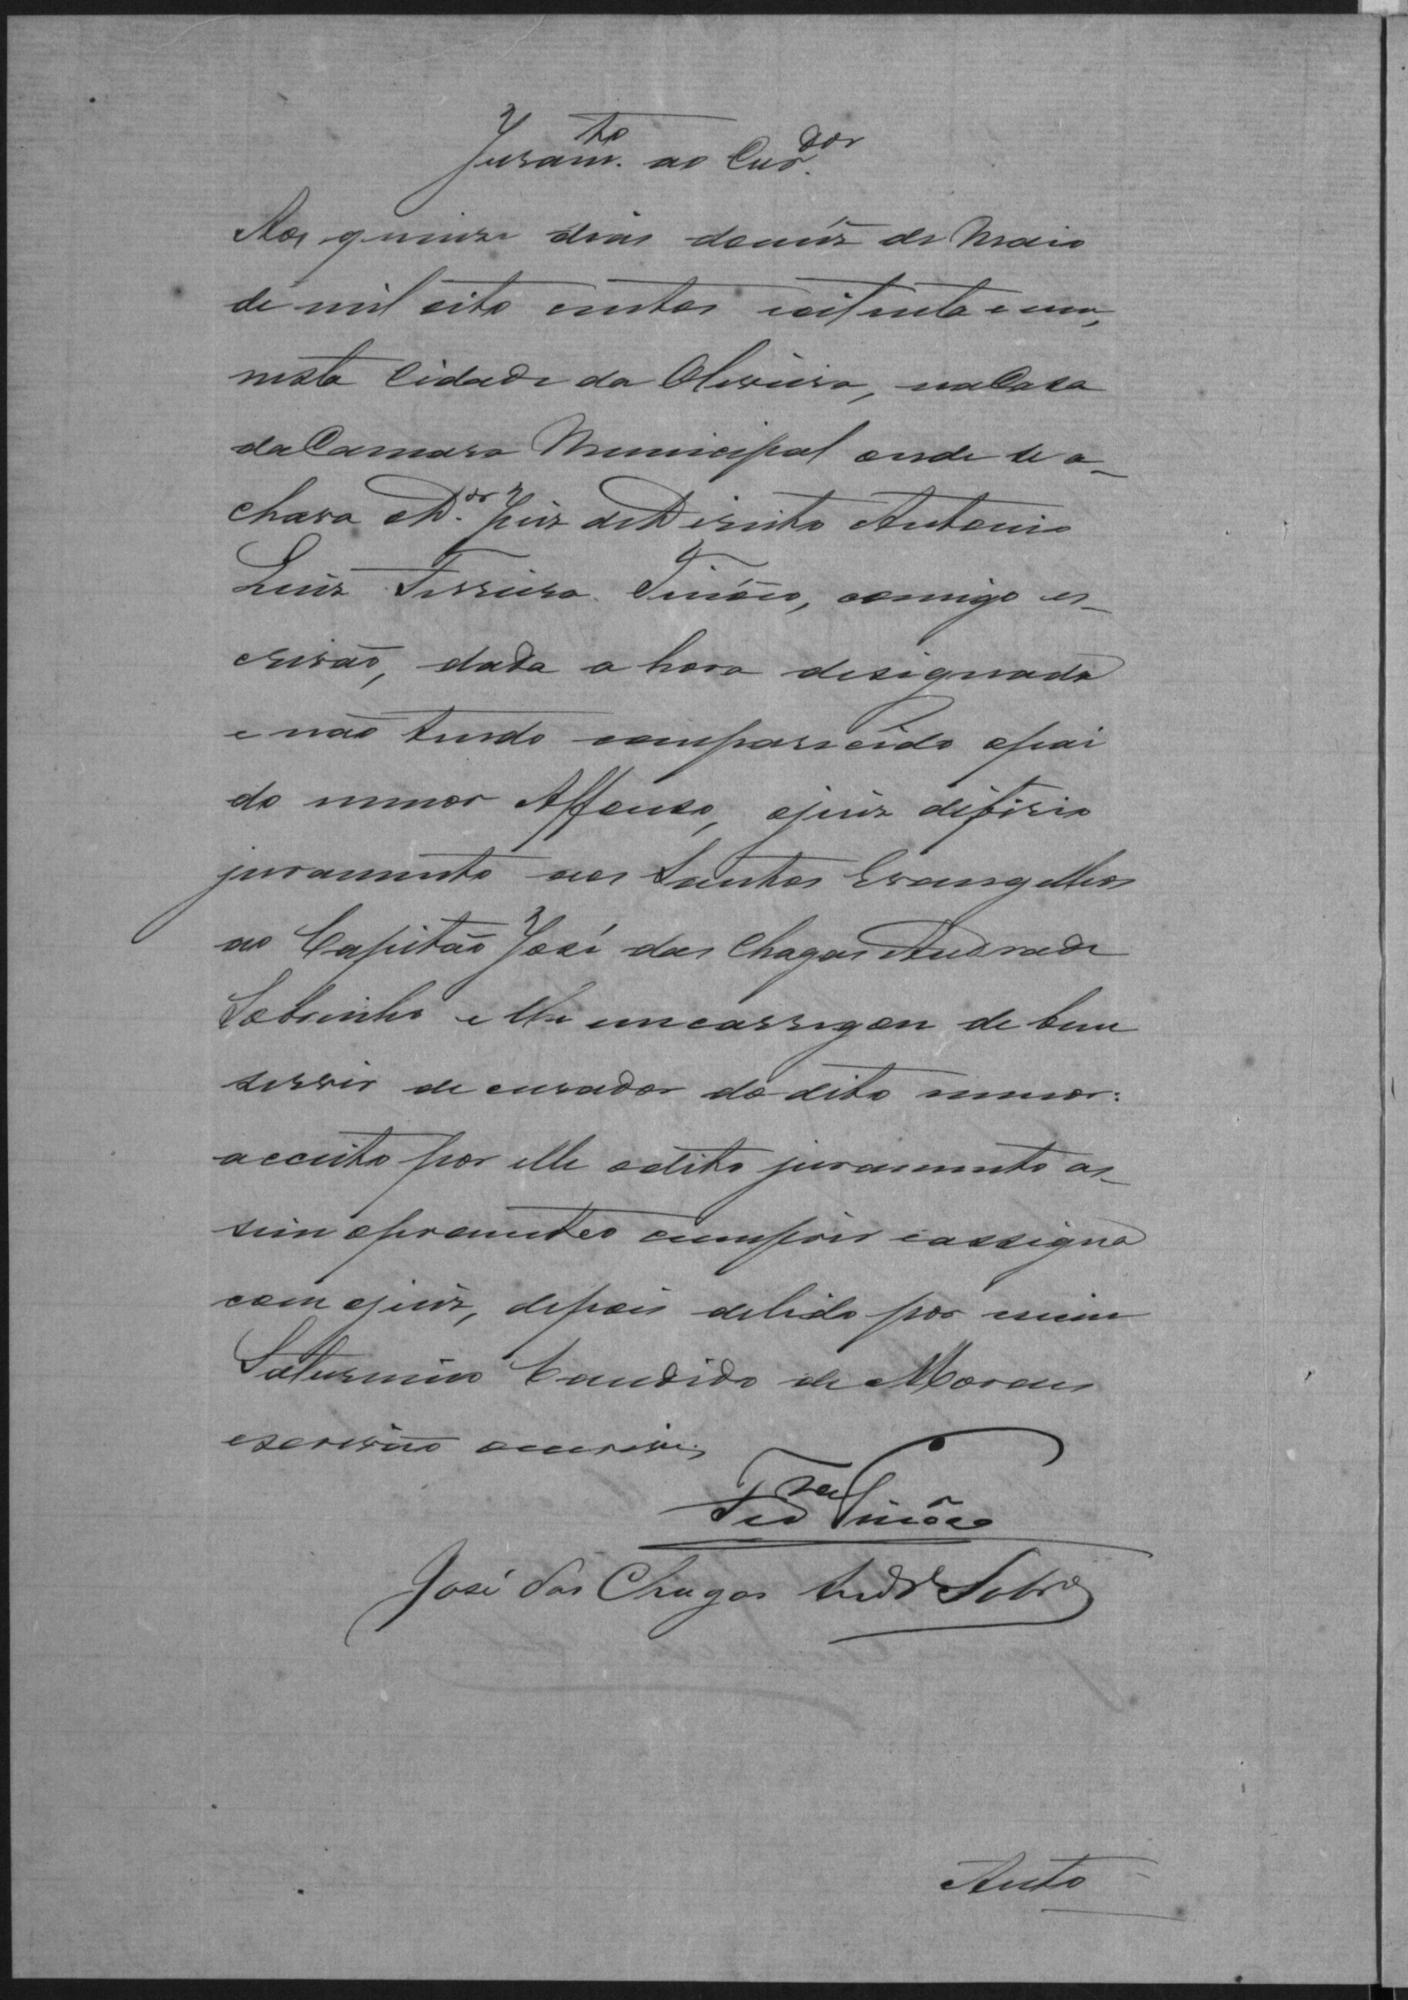 Juram.to ao Cur.dor
Aos quinze dias do mêz de Maio
de mil oito centos e oitenta e um,
nesta Cidade da Oliveira, na Casa
da Camara Municipal onde se a-
chava o D.or Juiz de Direito Antonio
Luiz Ferreira Tinôco, comigo es-
crivão, dada a hora designada
e não tendo comparecido o pai
do menor Affonso, o juiz deferio
juramento aos Santos Evangelhos
ao Capitão José das Chagas Andrade
Sobrinho e lhe encarregou de bem
servir de curador do dito menor:
acceito por elle o dito juramento as-
sim o prometteo cumprir e assigna
com o juiz, depois de lido por mim
Saturnino Candido de Moraes
escrivão o escrivi.
Ferra Tinôco
José das Chagas And.e Sobr.o
Auto